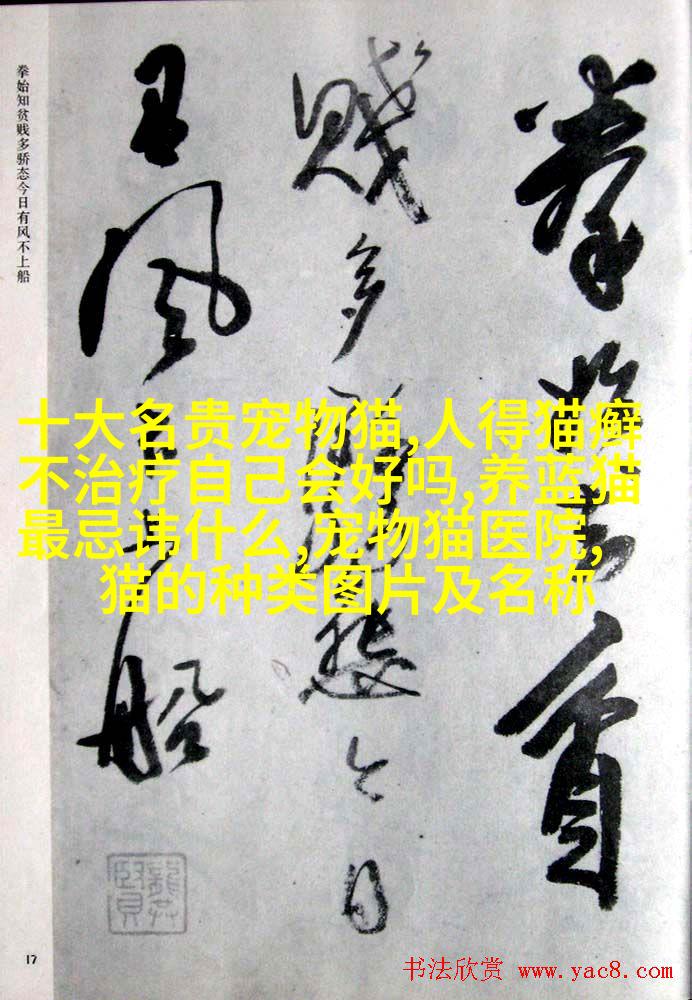 拳始知贫贱多骄态今日有风不上船
拳始知贫
贱多骄态今日
有风不上船
十大名贵宠物猫,人得猫癣
不治疗自己会好吗,养蓝猫
最忌讳什么,宠物猫医院,
猫的种类图片及名称
17
书法欣赏 www.yac8.com